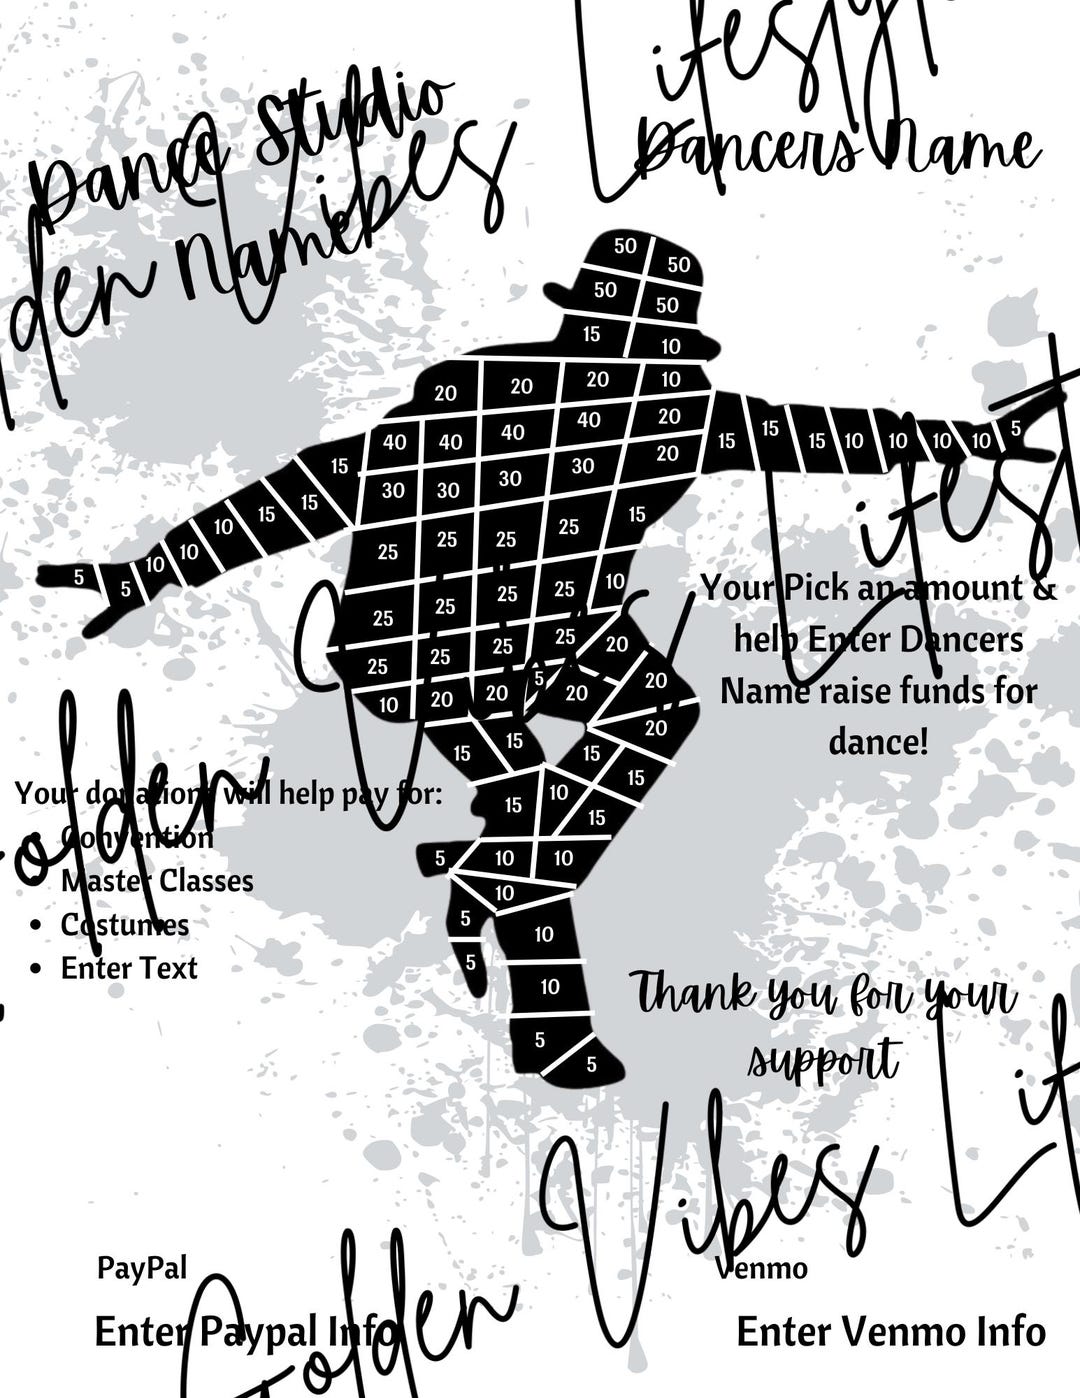 Lifestyle
Dance Studio
Name
Dancers Name
Golden Vibes Lifestyle
50
50
50
50
15
10
20
20
20
10
40
40
40
40
20
15
15
15
10
10
10
10
5
15
30
30
30
30
20
15
15
10
10
10
5
5
25
25
25
25
15
25
25
25
25
10
25
25
25
25
20
10
20
20
5
20
20
20
Your Pick an amount &
help Enter Dancers
Name raise funds for
dance!
15
15
15
15
Your donations will help pay for:
• Convention
• Master Classes
• Costumes
• Enter Text
15
10
15
5
10
10
10
5
5
10
10
5
5
Thank you for your
support
Golden Vibes Lif
PayPal
Venmo
Enter Paypal Info
Enter Venmo Info